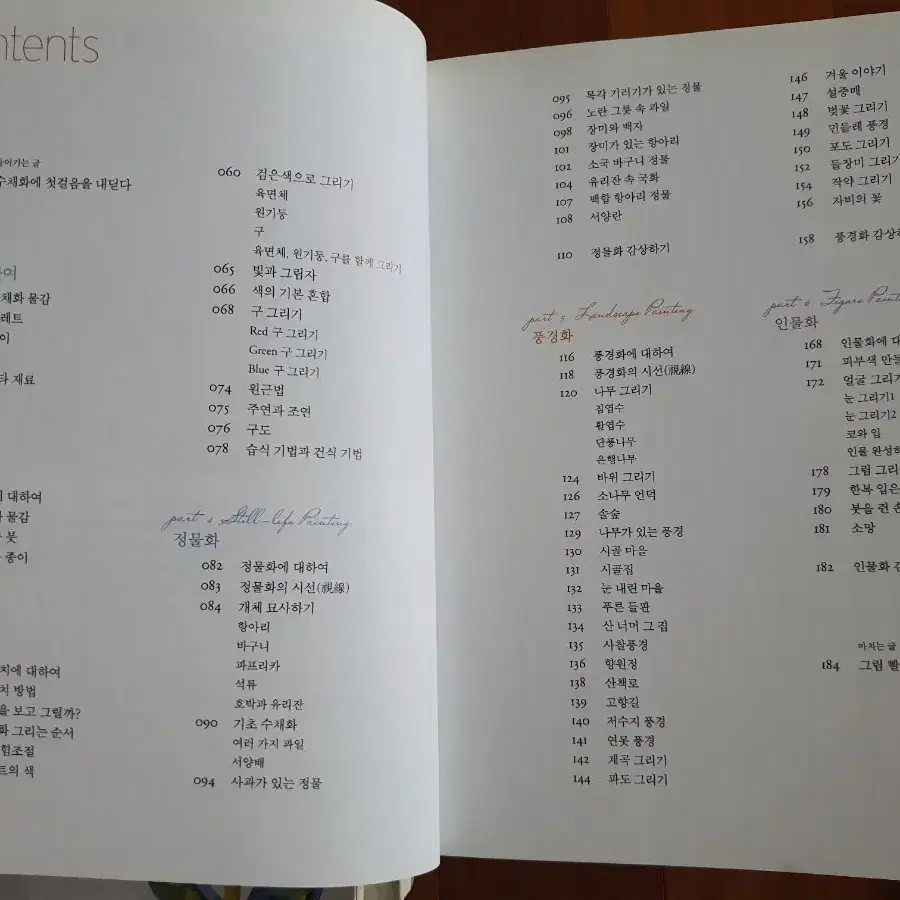 ntents
들어가는 글
수채화에 첫걸음을 내딛다
하여
채화 물감
레트
이
타 재료
에 대하여
물감
붓
종이
치에 대하여
치 방법
을 보고 그릴까?
화 그리는 순서
힘조절
트의 색
060 검은색으로 그리기
육면체
원기둥
구
육면체, 원기둥, 구를 함께 그리기
065 빛과 그림자
066 색의 기본 혼합
068 구 그리기
Red 구 그리기
Green 구 그리기
Blue 구 그리기
074 원근법
075 주연과 조연
076 구도
078 습식 기법과 건식 기법
part 4 Still-life Painting
정물화
082 정물화에 대하여
083 정물화의 시선(視線)
084 개체 묘사하기
항아리
바구니
파프리카
석류
호박과 유리잔
090 기초 수채화
여러 가지 과일
서양배
094 사과가 있는 정물
095 목각 기러기가 있는 정물
096 노란 그릇 속 과일
098 장미와 백자
101 장미가 있는 항아리
102 소국 바구니 정물
104 유리잔 속 국화
107 백합 항아리 정물
108 서양란
110 정물화 감상하기
part 5 Landscape Painting
풍경화
116 풍경화에 대하여
118 풍경화의 시선(視線)
120 나무 그리기
침엽수
활엽수
단풍나무
은행나무
124 바위 그리기
126 소나무 언덕
127 솔숲
129 나무가 있는 풍경
130 시골 마을
131 시골집
132 눈 내린 마을
133 푸른 들판
134 산 너머 그 집
135 사찰풍경
136 향원정
138 산책로
139 고향길
140 저수지 풍경
141 연못 풍경
142 계곡 그리기
144 파도 그리기
146 겨울 이야기
147 설중매
148 벚꽃 그리기
149 민들레 풍경
150 포도 그리기
152 들장미 그리기
154 작약 그리기
156 자비의 꽃
158 풍경화 감상하
part 6 Figure Paint
인물화
168 인물화에 대
171 피부색 만들
172 얼굴 그리기
눈 그리기1
눈 그리기2
코와 입
인물 완성하
178 그림 그리
179 한복 입은
180 붓을 쥔 손
181 소망
182 인물화 감
마치는 글
184 그림 빨